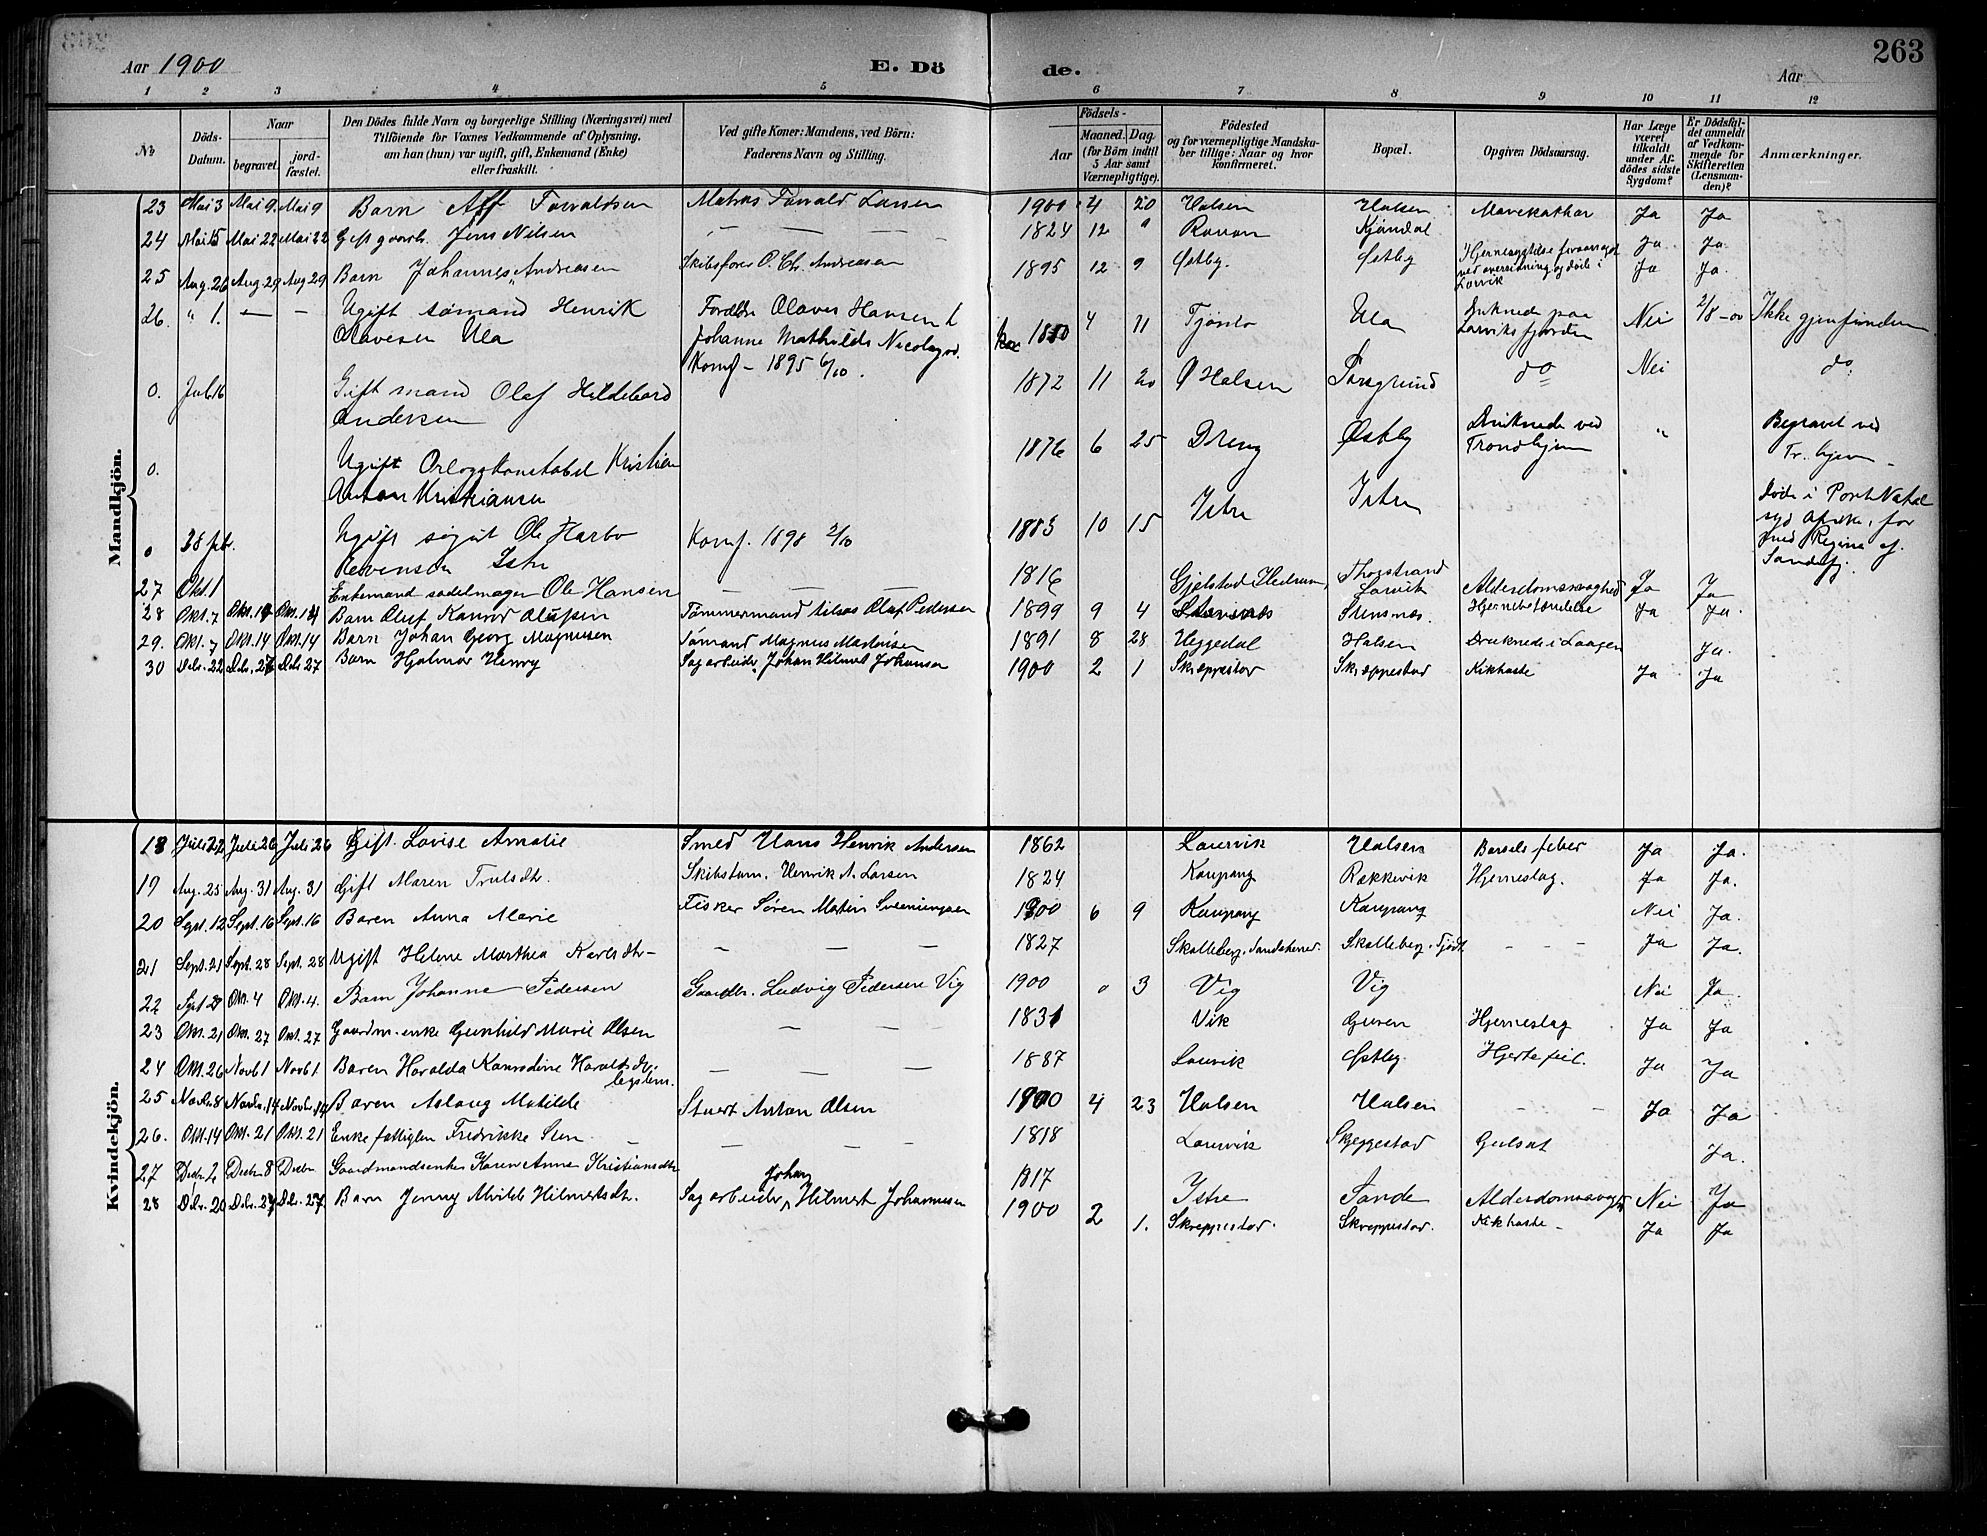 263
Aar 1900
E. Dö
de.
Aar
1 2 3 4 5 6 7 8 9 10 11 12
№
Döds-
Datum.
Naar
begravet.
jord-
fæstet.
Den Dödes fulde Navn og borgerlige Stilling (Næringsvei) med
Tilföiende for Voxnes Vedkommende af Oplysning,
om han (hun) var ugift, gift, Enkemand (Enke)
eller fraskilt.
Ved gifte Koner: Mandens, ved Börn:
Faderens Navn og Stilling.
Födsels-
Aar
Maaned. Dag.
(for Börn indtil
5 Aar samt
Værnepligtige).
Födested
og for værnepligtige Mandska-
ber tillige: Naar og hvor
konfirmeret.
Bopæl.
Opgiven Dödsaarsag.
Har Læge
været
tilkaldt
under Af-
dödes sidste
Sygdom?
Er Dödsfal-
det anmeldt
af Vedkom-
mende for
Skifteretten
(Lensman-
den)?
Anmærkninger.
Mandkjön.
23 Mai 3 Mai 9. Mai 9 Barn Alf Torvaldsen Matros Torvald Larsen 1900 4 20 Halsen Halsen Mavekathar Ja Ja
24 Mai 15 Mai 22 Mai 22 Gift gaardb. Jens Nilsen — — — 1824 12 " Ravan Kjøndal Ja Ja.
25 Aug. 26 Aug 29 Aug 29 Barn Johannes Andreasen Skibsfører O. Chr. Andreasen 1895 12 9 Østby. Østby Hjernesygdom foraarsaget
ved overridning og døde i
Larvik Ja Ja.
26. " 1. — — Ugift sømand Henrik
Olavesen Ula Forældre Olaves Hansen &
Johanne Mathilde Nicolaysd.
Konf – 1895 6/10. 1880 4 11 Tjønto Ula Druknede paa
Larviksfjorden Nei 2/8 – 00 Ikke gjenfunden
0. Juli 16 Gift mand Olaf Hildebard
Andersen 1872 11 20 Ø Halsen Porsgrund do Nei do
0. Ugift Orlogskonstabel Kristian
Anton Kristiansen 1876 6 25 Dreng Østby Druknede ved
Trondhjem " Begravet ved
Tr. hjem –
0 28 feb. Ugift søgut Ole Harbo
Evensen Istre Konf. 1898 2/10 1883 10 15 Istre Istre Døde i Port Natal
syd Afrika, for
med Regina af
Sandefj.
27 Okt. 1 Enkemand sadelmager Ole Hansen — — 1816 Gjelstad Hedrum, Thorstrand
Larvik Alderdomssvaghed Ja Ja
28 Okt. 7 Okt. 14 Okt. 14 Barn Oluf Konrod Olufsen Tømmermand Olaf Pedersen 1899 9 4 Stensnæs Stensnæs. Hjernebetændelse Ja Ja.
29. Okt. 7 Okt. 14 Okt. 14 Barn Johan Georg Magnusen Sømand Magnus Martinsen 1891 8 28 Heggedal Halsen Druknede i Laagen Ja.
30 Debr. 22 Debr. 27 Debr 27 Barn Hjalmar Henry Sagarbeider Johan Hilmert Johansen 1900 2 1 Skreppestad Skreppestad Kikhoste Ja Ja
Kvindekjön.
18 Juli 22 Juli 26 Juli 26 Gift Lovise Amalie Smed Hans Henrik Andersen 1862 Laurvik Halsen Barselfeber Ja Ja.
19 Aug. 25 Aug. 31 Aug. 31 Gift Maren Trulsdtr. Skibstøm. Henrik A. Larsen 1824 Kaupang Rækkevik Hjerneslag. Ja Ja.
20 Sept. 12 Sept. 16 Sept. 16 Baren Anna Marie Fisker Søren Martin Sveeningsen 1900 6 9 Kaupang Kaupang Nei Ja.
21 Sept. 21 Sept. 28 Sept. 28 Ugift Helene Marthea Karlsdtr – — — — 1827 Skalleberg. Sandeherred Skalleberg. Tjødl. – – – Ja Ja.
22 Sept 29 Okt. 4 Okt. 4. Barn Johanne Pedersen Gaardbr. Ludvig Pedersen Vig 1900 0 3 Vig Vig Nei Ja.
23 Okt. 21 Okt. 27 Okt. 27 Gaardm. enke Gunhild Marie Olsen — — 1831 Vik Guren Hjerneslag Ja Ja
24 Okt. 26 Novb 1 Novb 1. Baren Haralda Konradine Haraldsdtr.
legslem. — — — 1887 Laurvik Østby. Hjertefeil. Ja Ja
25 Novbr. 8 Novbr. 14 Novbr. 14 Baren Aslaug Matilde Stuert Anton Olsen 1900 4 23 Halsen Halsen – – Ja Ja
26. Okt. 14 Okt. 21 Okt. 21 Enke fattiglem Fredrikke Sem – — — 1818 Laurvik Skjeggestad Gulsot Ja.
27 Decbr. 2 Decbr 8 Decbr Gaardmandsenke Karen Anne Kristiansdtr 1817 Istre Sande Alderdomssvaghed Nei Ja
28 Debr. 20 Debr. 27 Debr. 27 Barn Jenny Alvilde Hilmertsdtr. Sagarbeider Johan Hilmert Johannesen 1900 2 1. Skreppestad. Skreppestad. Kikhoste – Ja Ja